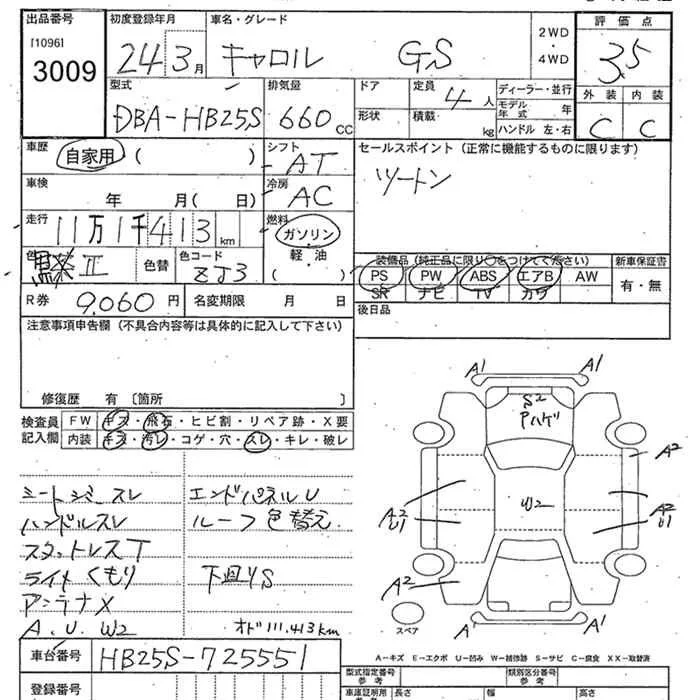 出品番号
[1096]
3009
初度登録年月
24 3月
車名・グレード
キャロル GS
2WD
・
4WD
評価点
3.5
型式
DBA-HB25S
排気量
660 cc
ドア
形状
定員
4 人
積載
kg
ディーラー・並行
モデル年式 年
ハンドル 左・右
外装 内装
C C
車歴
自家用 ( )
シフト
AT
セールスポイント (正常に機能するものに限ります)
ツートン
車検
年 月( 日)
冷房
AC
走行
11万1千413 km
燃料
ガソリン
軽・油
( )
色
黒 II
色替
色コード
ZJ3
装備品 (純正品に限り○をつけてください)
PS PW ABS エアB AW
SR ナビ TV カワ
新車保証書
有・無
R券 9,060 円
名変期限 月 日
後日品
注意事項申告欄 (不具合内容等は具体的に記入して下さい)
修復歴 有 〔箇所 〕
検査員
記入欄
FW キズ・飛石・ヒビ割・リペア跡・X要
内装 キズ・汚レ・コゲ・穴・スレ・キレ・破レ
シートジミスレ
ハンドルスレ
スタットレスT
ライトくもり
アンテナX
A.U.W2
エンドパネルU
ルーフ色替え
下廻りS
オド111.413km
A1
A1
S2
Pハゲ
A2
A2
U1
W2
A2
U1
A2
A1
A1
スペア
A-キズ E-エクボ U-凹み W-補修跡 S-サビ C-腐食 XX-取替済
車台番号
HB25S-725551
登録番号
型式指定番号
参考
類別区分番号
参考
車庫証明用
参考
長さ
幅
高さ